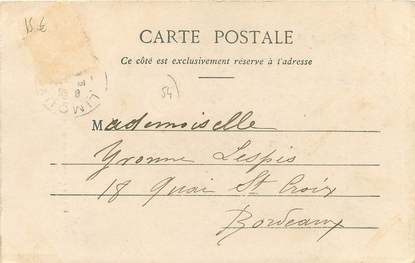 15 €
CARTE POSTALE
Ce côté est exclusivement réservé à l'adresse
54)
Mademoiselle
Yvonne Lespis
18 Quai St Croix
Bordeaux